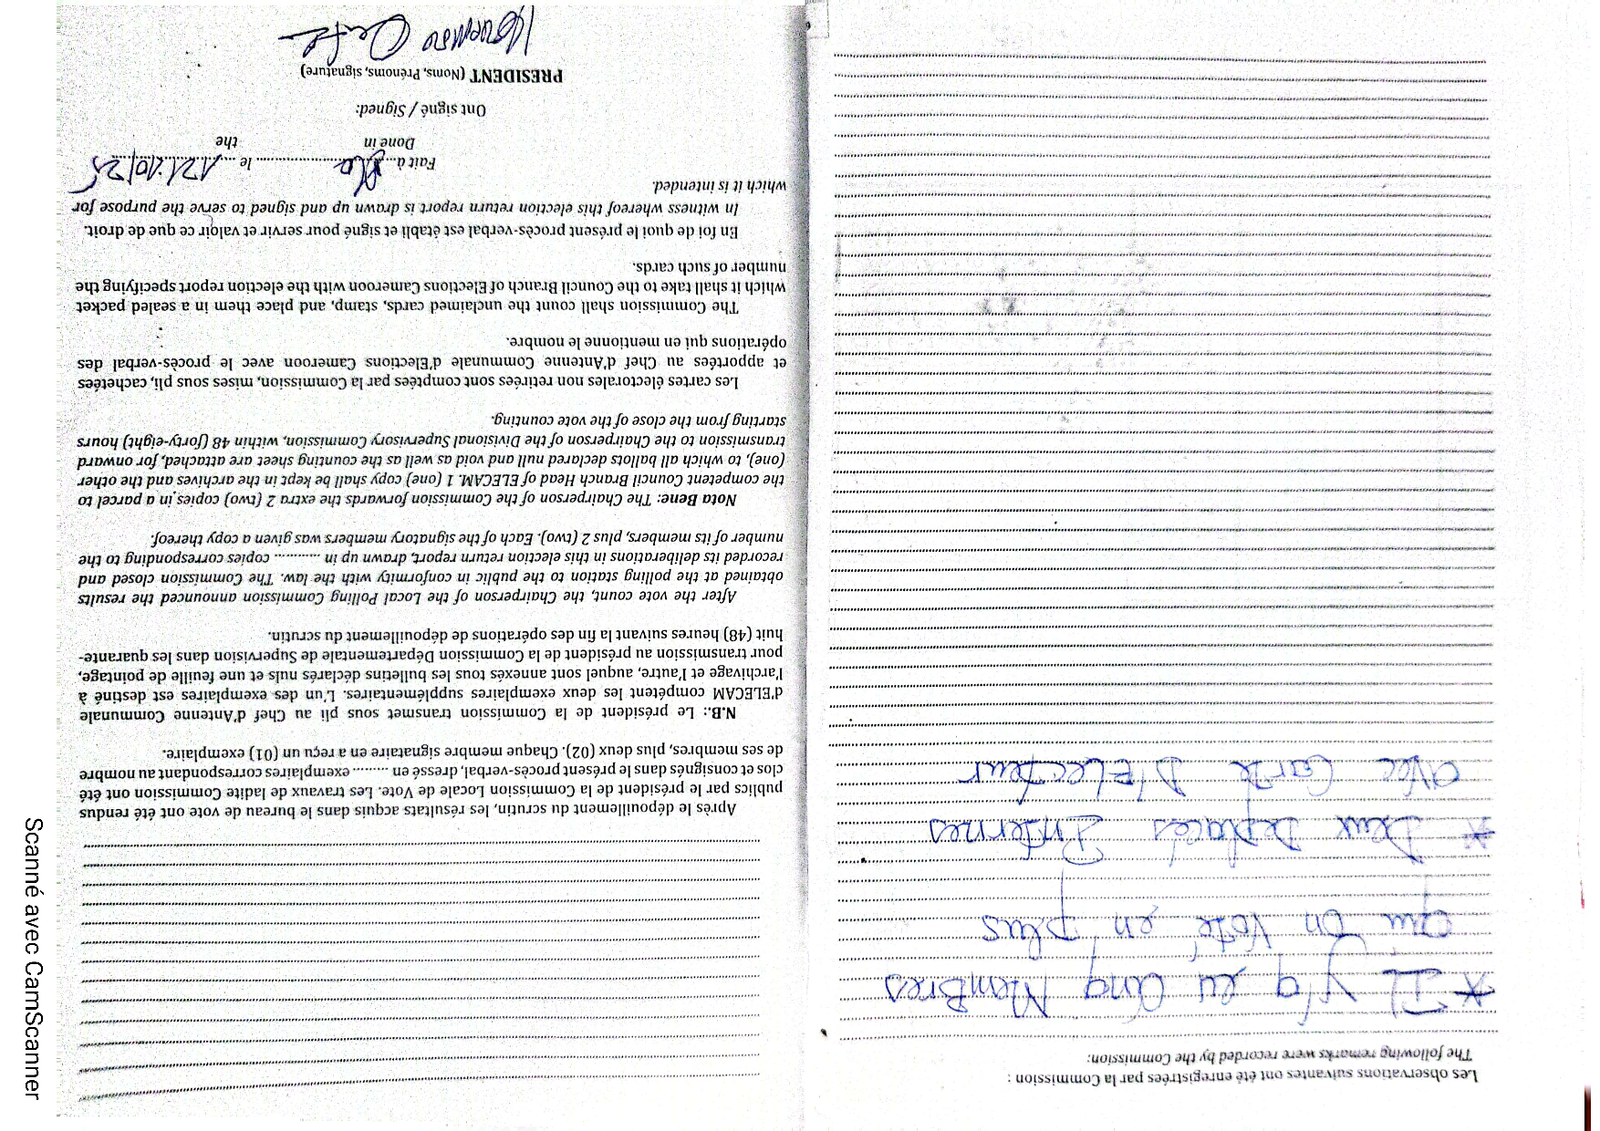 Les observations suivantes ont été enregistrées par la Commission :
The following remarks were recorded by the Commission:
* Il y'a eu Cinq Membres
qui on voté en plus
* Deux Deplacés Internes
avec Carte D'Electeur
Après le dépouillement du scrutin, les résultats acquis dans le bureau de vote ont été rendus
publics par le président de la Commission Locale de Vote. Les travaux de ladite Commission ont été
clos et consignés dans le présent procès-verbal, dressé en ......... exemplaires correspondant au nombre
de ses membres, plus deux (02). Chaque membre signataire en a reçu un (01) exemplaire.
N.B.: Le président de la Commission transmet sous pli au Chef d'Antenne Communale
d'ELECAM compétent les deux exemplaires supplémentaires. L'un des exemplaires est destiné à
l'archivage et l'autre, auquel sont annexés tous les bulletins déclarés nuls et une feuille de pointage,
pour transmission au président de la Commission Départementale de Supervision dans les quarante-
huit (48) heures suivant la fin des opérations de dépouillement du scrutin.
After the vote count, the Chairperson of the Local Polling Commission announced the results
obtained at the polling station to the public in conformity with the law. The Commission closed and
recorded its deliberations in this election return report, drawn up in ............ copies corresponding to the
number of its members, plus 2 (two). Each of the signatory members was given a copy thereof.
Nota Bene: The Chairperson of the Commission forwards the extra 2 (two) copies in a parcel to
the competent Council Branch Head of ELECAM. 1 (one) copy shall be kept in the archives and the other
(one), to which all ballots declared null and void as well as the counting sheet are attached, for onward
transmission to the Chairperson of the Divisional Supervisory Commission, within 48 (forty-eight) hours
starting from the close of the vote counting.
Les cartes électorales non retirées sont comptées par la Commission, mises sous pli, cachetées
et apportées au Chef d'Antenne Communale d'Elections Cameroon avec le procès-verbal des
opérations qui en mentionne le nombre.
The Commission shall count the unclaimed cards, stamp, and place them in a sealed packet
which it shall take to the Council Branch of Elections Cameroon with the election report specifying the
number of such cards.
En foi de quoi le présent procès-verbal est établi et signé pour servir et valoir ce que de droit.
In witness whereof this election return report is drawn up and signed to serve the purpose for
which it is intended.
Fait à ............ le 12/10/25
Done in the
Ont signé / Signed:
PRESIDENT (Noms, Prénoms, signature)
Scanné avec CamScanner